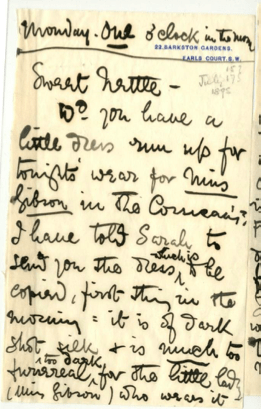 Monday. One o'clock in the morn
22, BARKSTON GARDENS,
EARLS COURT. S.W.
Sweet Nettle -
Wd you have a
little dress run up for
tonights' wear for Miss
Gibson in the Corsicans?
I have told Sarah to
send you the dress, which is to be
copied, first thing in the
morning = it is of dark
shot silk & is much too
funereal, & too dark, for the little lady
(Miss Gibson) who wears it